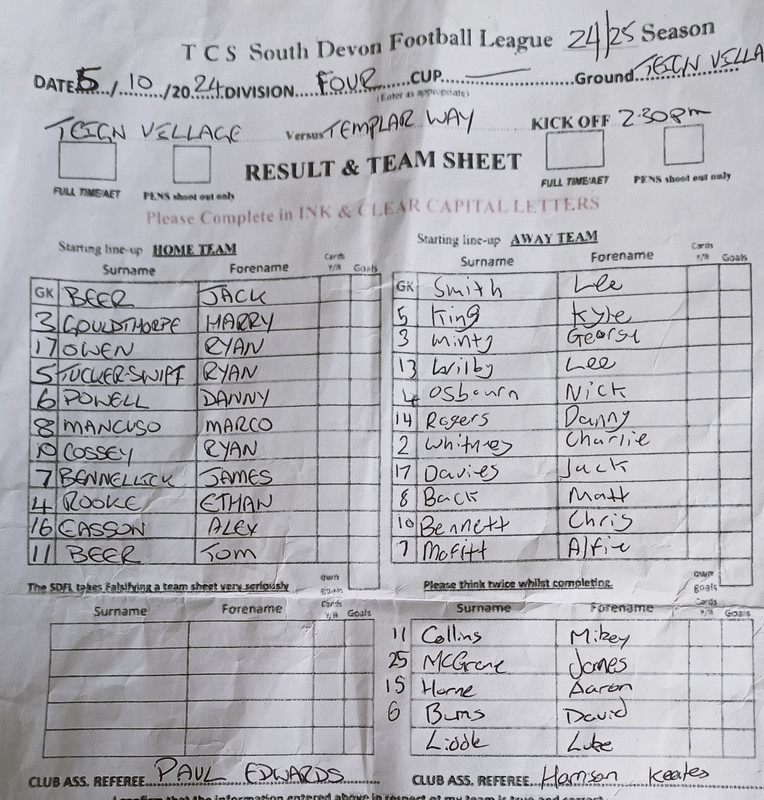 TCS South Devon Football League 24/25 Season
DATE 5/10/2024 DIVISION FOUR CUP — Ground TEIGN VILLA
(Enter as appropriate)
TEIGN VILLAGE Versus TEMPLAR WAY KICK OFF 2.30pm
FULL TIME/AET PENS shoot out only RESULT & TEAM SHEET FULL TIME/AET PENS shoot out only
Please Complete in INK & CLEAR CAPITAL LETTERS
Starting line-up HOME TEAM
Surname Forename Cards Y/R Goals
GK BEER JACK
3 GOULDTHORPE HARRY
17 OWEN RYAN
5 TUCKER-SWIFT RYAN
6 POWELL DANNY
8 MANCUSO MARCO
10 COSSEY RYAN
7 BENNELLICK JAMES
4 ROOKE ETHAN
16 EASSON ALEX
11 BEER TOM
own goals
The SDFL takes Falsifying a team sheet very seriously
Surname Forename Cards Y/R Goals
CLUB ASS. REFEREE PAUL EDWARDS
Starting line-up AWAY TEAM
Surname Forename Cards Y/R Goals
GK Smith Lee
5 King Kyle
3 Minty George
13 Wilby Lee
4 Osbourn Nick
14 Rogers Danny
2 Whitney Charlie
17 Davies Jack
8 Back Matt
10 Bennett Chris
7 Moffitt Alfie
own goals
Please think twice whilst completing.
Surname Forename Cards Y/R Goals
11 Collins Mikey
25 McGrane James
15 Horne Aaron
6 Burns David
Liddle Luke
CLUB ASS. REFEREE Harrison Keates
I confirm that the information entered above in respect of my team is true and correct